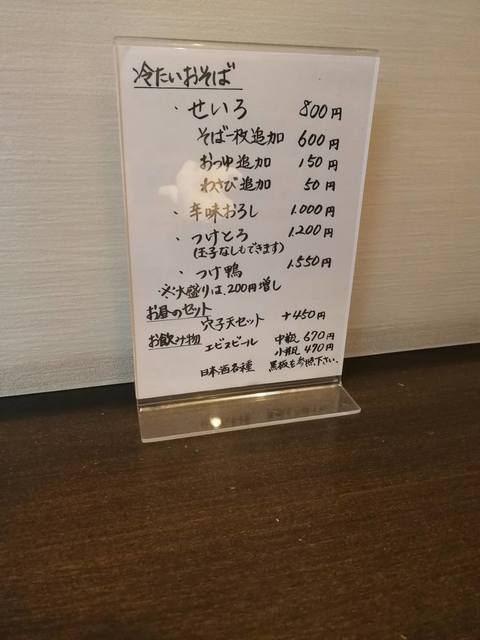 冷たいおそば
・せいろ 800円
そば一枚追加 600円
おつゆ追加 150円
わさび追加 50円
・辛味おろし 1.000円
・つけとろ 1.200円
(玉子なしもできます)
・つけ鴨 1.550円
※大盛りは、200円増し
お昼のセット
穴子天セット +450円
お飲み物 エビスビール 中瓶 670円
小瓶 470円
日本酒各種 黒板を参照下さい。